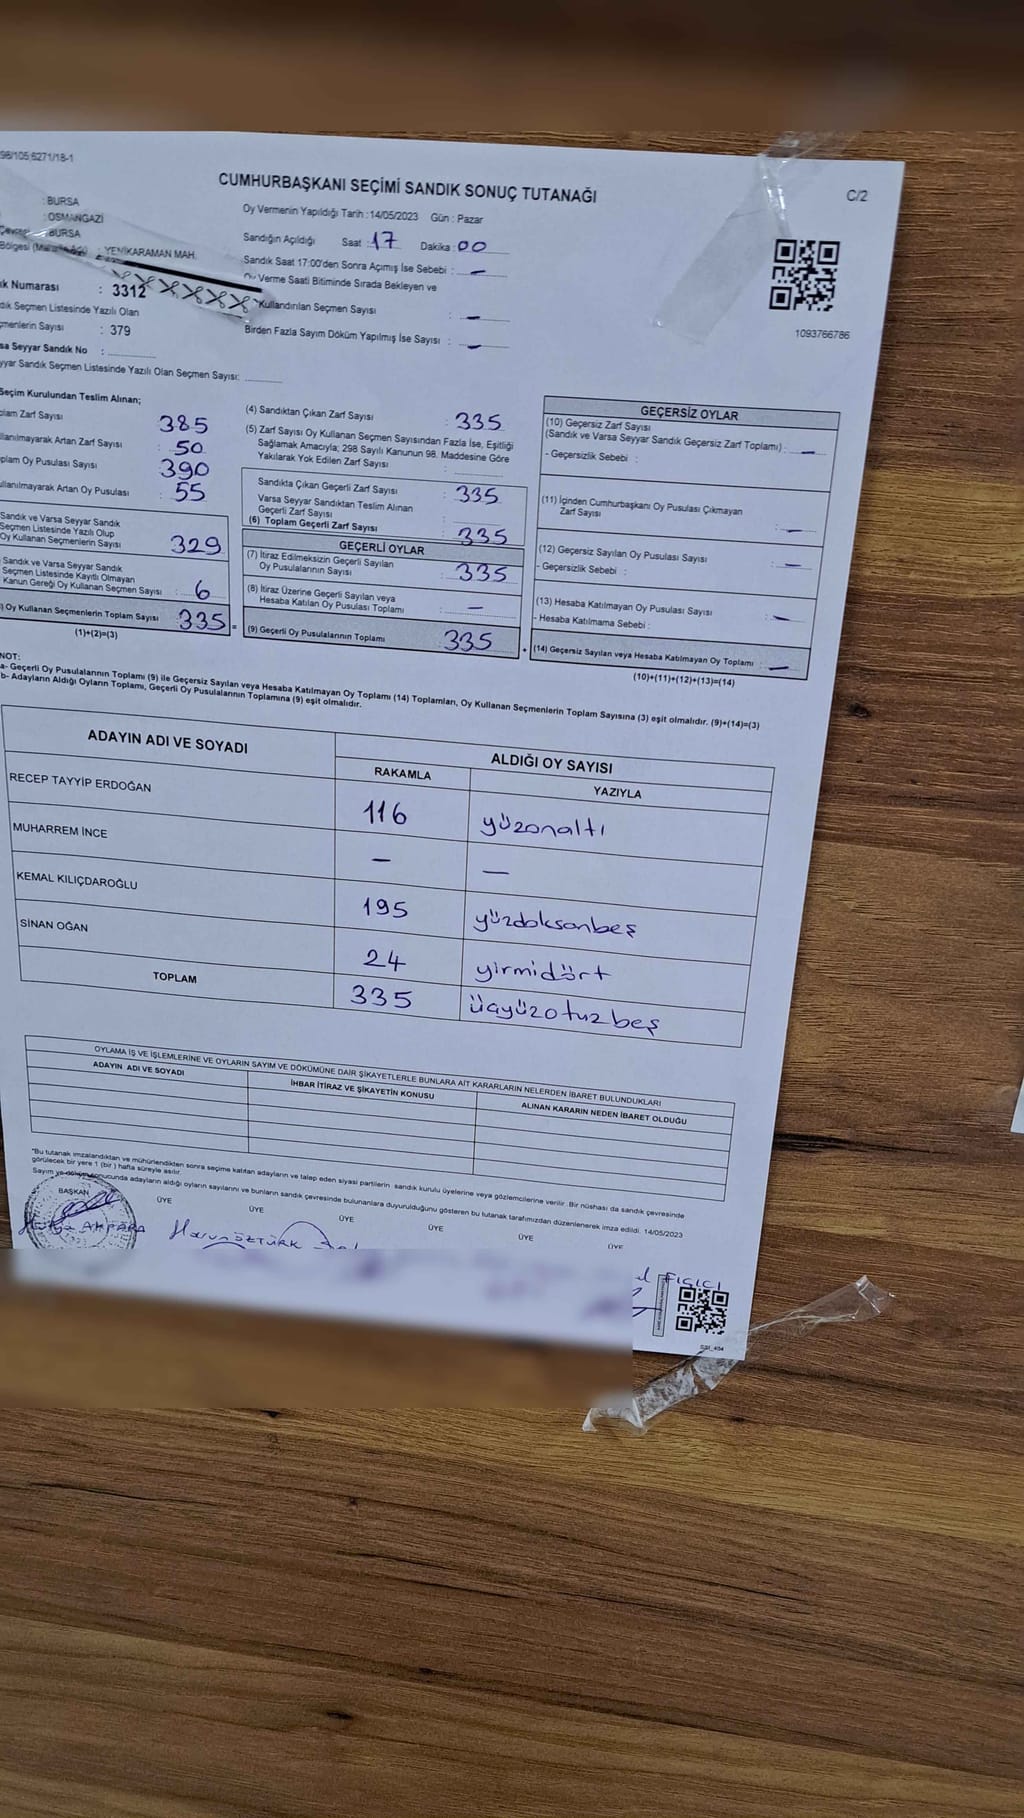 98/105;6271/18-1
CUMHURBAŞKANI SEÇİMİ SANDIK SONUÇ TUTANAĞI
C/2
: BURSA
: OSMANGAZİ
: BURSA
Bölgesi : YENİKARAMAN MAH.
Numarası : 3312
Seçmen Listesinde Yazılı Olan
Sayısı : 379
Seyyar Sandık No :
Sandık Seçmen Listesinde Yazılı Olan Seçmen Sayısı:
Oy Vermenin Yapıldığı Tarih : 14/05/2023 Gün : Pazar
Sandığın Açıldığı Saat : 17 Dakika : 00
Sandık Saat 17:00'den Sonra Açımış İse Sebebi : —
Oy Verme Saati Bitiminde Sırada Bekleyen ve
Kullandırılan Seçmen Sayısı : —
Birden Fazla Sayım Döküm Yapılmış İse Sayısı : —
1093766786
Seçim Kurulundan Teslim Alınan;
Zarf Sayısı 385
Artan Zarf Sayısı 50
Oy Pusulası Sayısı 390
Artan Oy Pusulası 55
Sandık ve Varsa Seyyar Sandık
Seçmen Listesinde Yazılı Olup
Oy Kullanan Seçmenlerin Sayısı 329
Sandık ve Varsa Seyyar Sandık
Seçmen Listesinde Kayıtlı Olmayan
Kanun Gereği Oy Kullanan Seçmen Sayısı : 6
Oy Kullanan Seçmenlerin Toplam Sayısı 335
(1)+(2)=(3)
=
(4) Sandıktan Çıkan Zarf Sayısı : 335
(5) Zarf Sayısı Oy Kullanan Seçmen Sayısından Fazla İse, Eşitliği
Sağlamak Amacıyla; 298 Sayılı Kanunun 98. Maddesine Göre
Yakılarak Yok Edilen Zarf Sayısı :
Sandıkta Çıkan Geçerli Zarf Sayısı : 335
Varsa Seyyar Sandıktan Teslim Alınan
Geçerli Zarf Sayısı :
(6) Toplam Geçerli Zarf Sayısı : 335
GEÇERLİ OYLAR
(7) İtiraz Edilmeksizin Geçerli Sayılan
Oy Pusulalarının Sayısı : 335
(8) İtiraz Üzerine Geçerli Sayılan veya
Hesaba Katılan Oy Pusulası Toplamı : —
(9) Geçerli Oy Pusulalarının Toplamı 335
+
GEÇERSİZ OYLAR
(10) Geçersiz Zarf Sayısı
(Sandık ve Varsa Seyyar Sandık Geçersiz Zarf Toplamı) : —
- Geçersizlik Sebebi :
(11) İçinden Cumhurbaşkanı Oy Pusulası Çıkmayan
Zarf Sayısı : —
(12) Geçersiz Sayılan Oy Pusulası Sayısı : —
- Geçersizlik Sebebi :
(13) Hesaba Katılmayan Oy Pusulası Sayısı : —
- Hesaba Katılmama Sebebi :
(14) Geçersiz Sayılan veya Hesaba Katılmayan Oy Toplamı : —
(10)+(11)+(12)+(13)=(14)
NOT:
a- Geçerli Oy Pusulalarının Toplamı (9) ile Geçersiz Sayılan veya Hesaba Katılmayan Oy Toplamı (14) Toplamları, Oy Kullanan Seçmenlerin Toplam Sayısına (3) eşit olmalıdır. (9)+(14)=(3)
b- Adayların Aldığı Oyların Toplamı, Geçerli Oy Pusulalarının Toplamına (9) eşit olmalıdır.
ADAYIN ADI VE SOYADI ALDIĞI OY SAYISI
RAKAMLA YAZIYLA
RECEP TAYYİP ERDOĞAN 116 yüzonaltı
MUHARREM İNCE — —
KEMAL KILIÇDAROĞLU 195 yüzdoksanbeş
SİNAN OĞAN 24 yirmidört
TOPLAM 335 üçyüzotuzbeş
OYLAMA İŞ VE İŞLEMLERİNE VE OYLARIN SAYIM VE DÖKÜMÜNE DAİR ŞİKAYETLERLE BUNLARA AİT KARARLARIN NELERDEN İBARET BULUNDUKLARI
ADAYIN ADI VE SOYADI İHBAR İTİRAZ VE ŞİKAYETİN KONUSU ALINAN KARARIN NEDEN İBARET OLDUĞU
"Bu tutanak imzalandıktan ve mühürlendikten sonra seçime katılan adayların ve talep eden siyasi partilerin sandık kurulu üyelerine veya gözlemcilerine verilir. Bir nüshası da sandık çevresinde
görülecek bir yere 1 (bir) hafta süreyle asılır.
Sayım ve döküm sonucunda adayların aldığı oyların sayılarını ve bunların sandık çevresinde bulunanlara duyurulduğunu gösteren bu tutanak tarafımızdan düzenlenerek imza edildi. 14/05/2023
BAŞKAN ÜYE ÜYE ÜYE ÜYE ÜYE ÜYE
Harun ÖZTÜRK